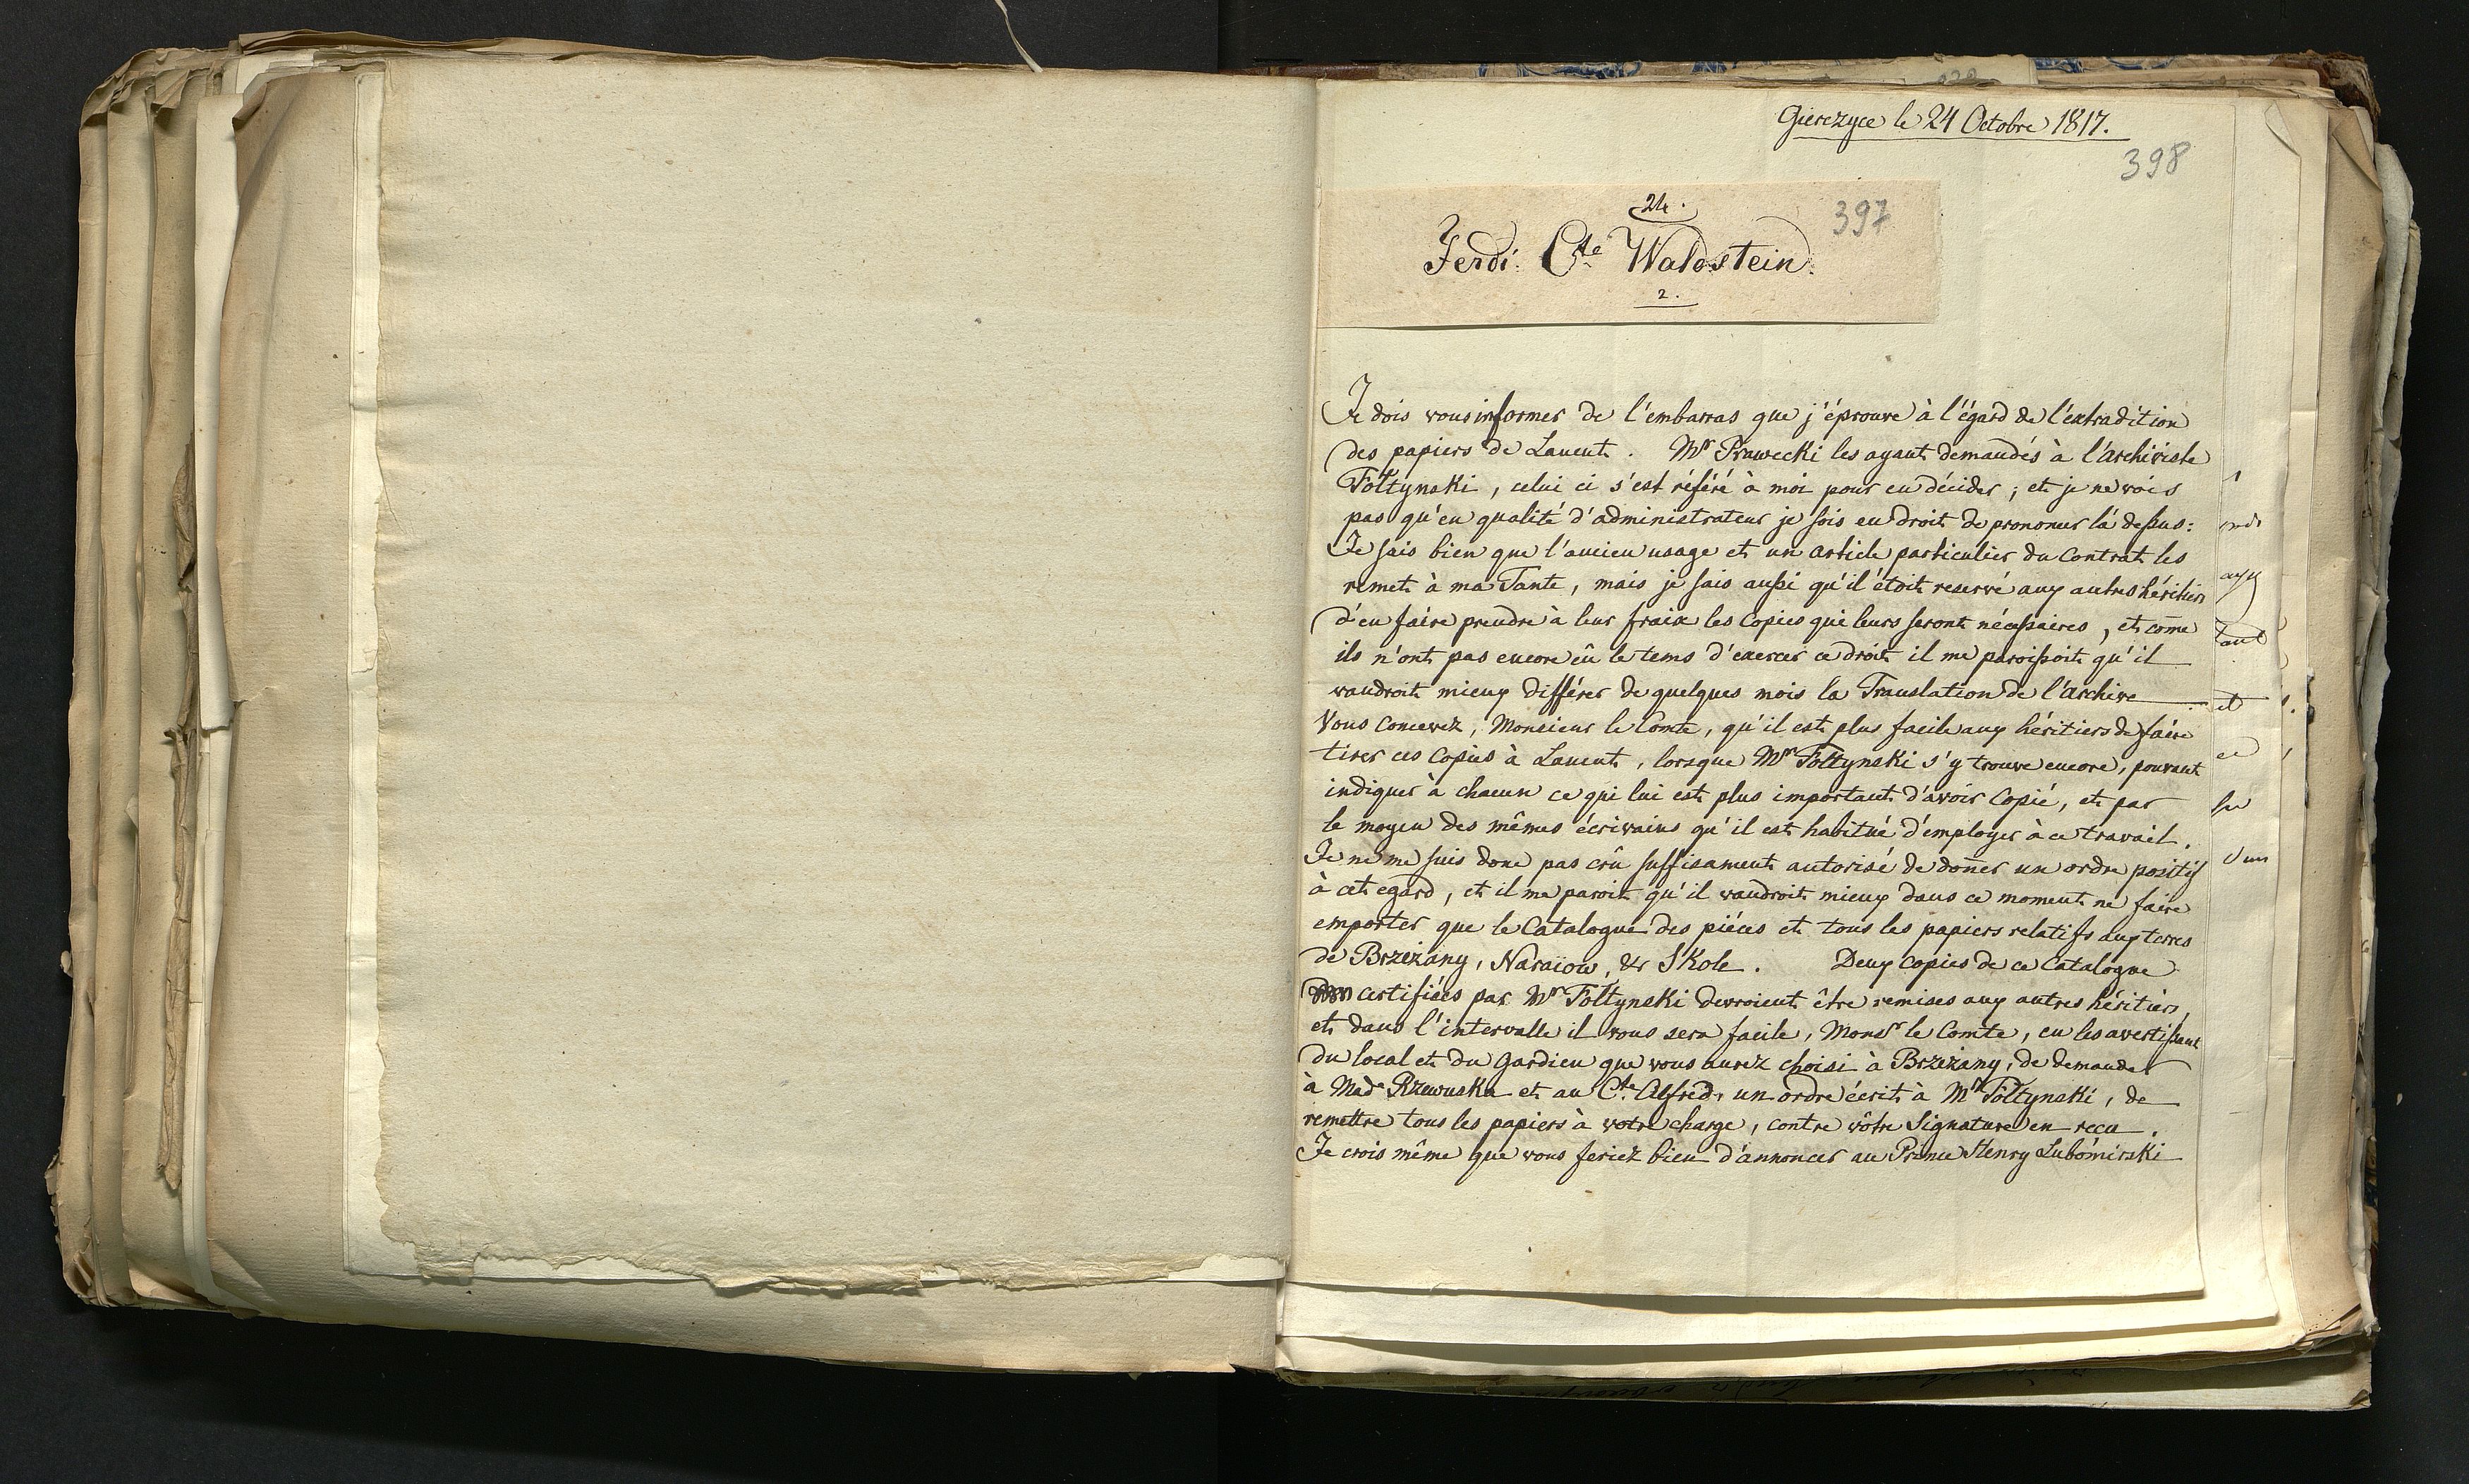 Gierczyce le 24 Octobre 1817.
398
24.
397
Ferdi: Cte Waldstein.
2.
Je dois vous informer de l'embarras que j'éprouve à l'égard de l'extradition
des papiers de Lancut. Mr Prawecki les ayant demandés à l'archiviste
Fołtynski, celui ci s'est référé à moi pour en décider; et je ne vois
pas qu'en qualité d'administrateur je sois en droit de prononcer là dessus:
Je sais bien que l'ancien usage et un article particulier du Contrat les
remet à ma Tante, mais je sais aussi qu'il étoit reservé aux autres héritiers
d'en faire prendre à leur fraix les Copies qui leurs seront nécessaires, et com̄e
ils n'ont pas encore eû le tems d'exercer ce droit il me paroissoit qu'il
vaudroit mieux différer de quelques mois la Translation de l'archive
Vous concevez, Monsieur le Comte, qu'il est plus facile aux héritiers de faire
tirer ces Copies à Lancut, lorsque Mr Fołtynski s'y trouve encore, pouvant
indiquer à chacun ce qui lui est plus important d'avoir Copié, et par
le moyen des mêmes écrivains qu'il est habitué d'employer à ce travail.
Je ne me suis donc pas crû suffisament autorisé de don̄er un ordre positif
à cet egard, et il me paroit qu'il vaudroit mieux dans ce moment ne faire
emporter que le Catalogue des piéces et tous les papiers relatifs aux terres
de Brzeżany, Naraïow, & Skole. Deux Copies de ce Catalogue
certifiées par Mr Fołtynski devroient être remises aux autres héritiers,
et dans l'intervalle il vous sera facile, Monsr le Comte, en les avertissant
du local et du Gardien que vous aurez choisi à Brzeżany, de demander
à Made Rzewuska et au Cte Alfred, un ordre écrit à Mr Fołtynski, de
remettre tous les papiers à votre charge, contre vôtre Signature en recu.
Je crois même que vous feriez bien d'annoncer au Prince Henry Lubomirski